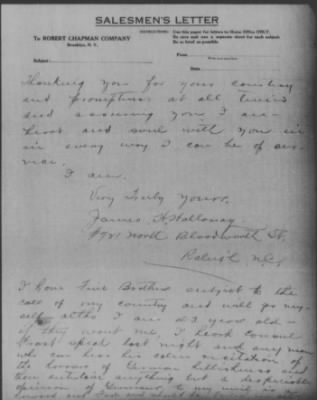 SALESMEN'S LETTER
To ROBERT CHAPMAN COMPANY
Brooklyn, N. Y.
INSTRUCTIONS: Use this paper for letters to Home Office ONLY.
Be sure and use a separate sheet for each subject.
Be as brief as possible.
Subject
From
Date
Thanking you for your courtesy
and promptness at all times
and assuring you I am
heart and soul with you in
in every way I can be of ser-
vice.
I am.
Very Truly yours,
James H. Holloway
North Bloodworth St,
Raleigh N.C.
I have Five Brothers subject to the
call of my country and will go my-
self altho I am 43 year old
if they want me. I heard
speak last night and any man
who can hear his recitation of
the horrors of German hellishness and
then entertain anything but a despicable
opinion of Germany, to my mind is a
coward and